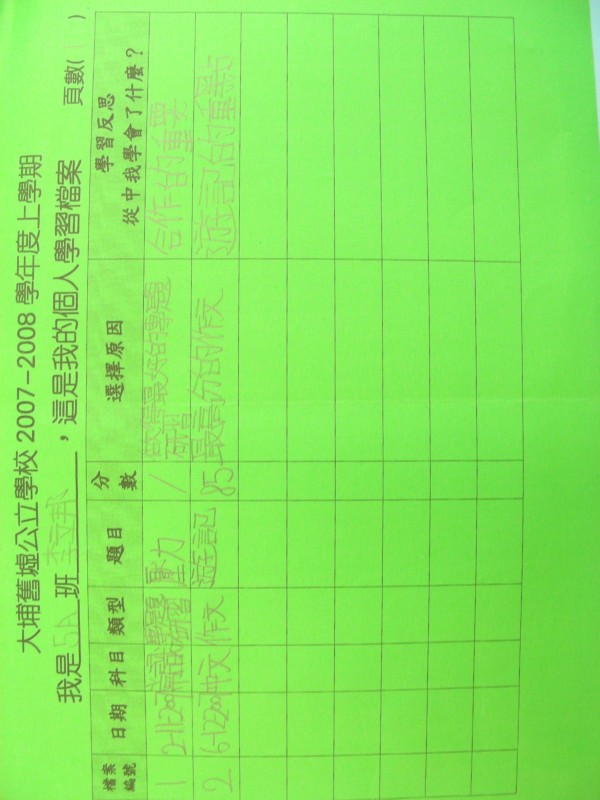 大埔舊墟公立學校 2007-2008 學年度上學期
我是 5A 班 ，這是我的個人學習檔案 頁數( 1 )
檔案編號 日期 科目 類型 題目 分數 選擇原因 學習反思 從中我學會了什麼？
1 專題研習 壓力 / 做得最好的專題研習 合作的重要
2 6-12-2007 中文 作文 遊記 85 最高分的作文 遊記的重點